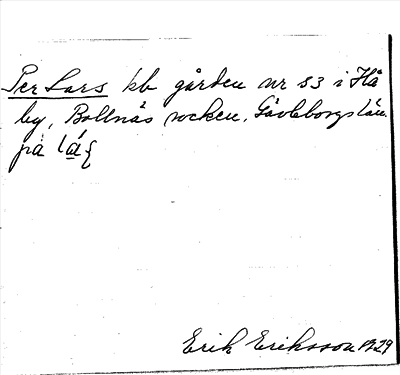 Per Lars kb gården nr 53 i Hå
by, Bollnäs socken, Gävleborgs län.
på lá̱ʃ
Erik Eriksson 1929